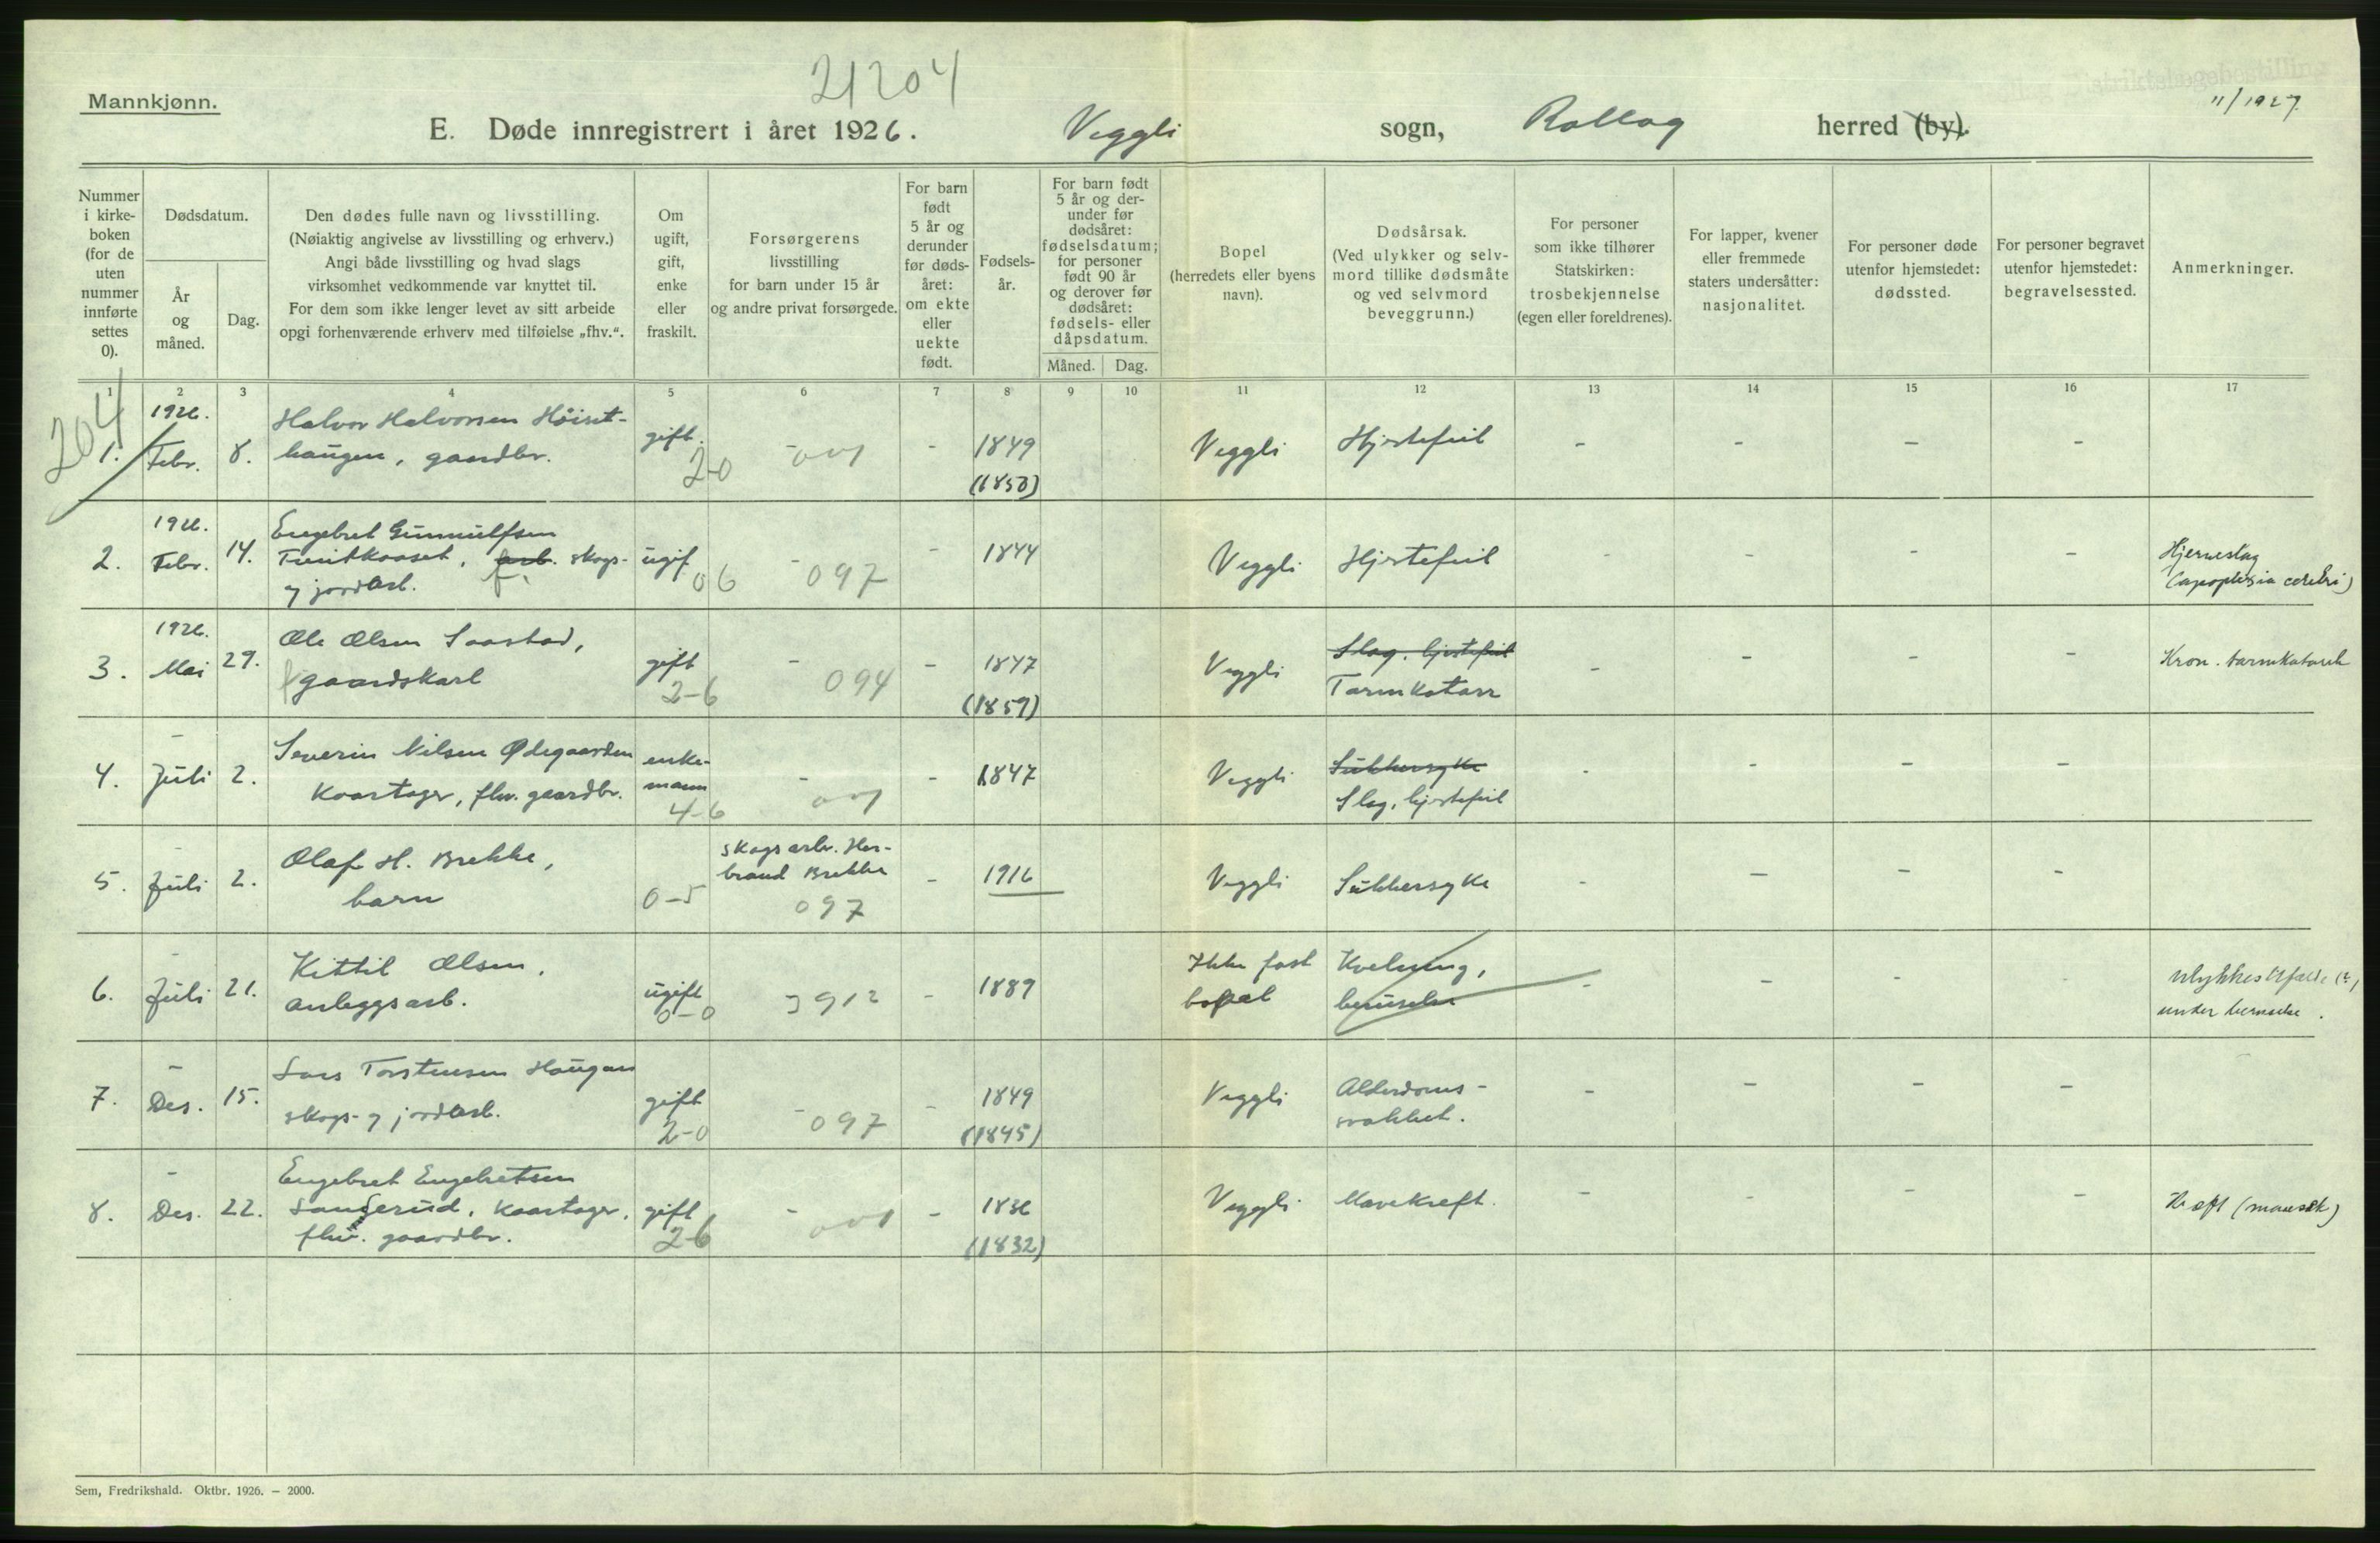 21204
Mannkjønn.
E. Døde innregistrert i året 1926. Veggli sogn, Rollag herred (by).
11/1927
Nummer i kirke- boken (for de uten nummer innførte settes 0).
Dødsdatum.
År og måned.
Dag.
Den dødes fulle navn og livsstilling.
(Nøiaktig angivelse av livsstilling og erhverv.)
Angi både livsstilling og hvad slags
virksomhet vedkommende var knyttet til.
For dem som ikke lenger levet av sitt arbeide
opgi forhenværende erhverv med tilføielse „fhv.“.
Om ugift, gift, enke eller fraskilt.
Forsørgerens
livsstilling
for barn under 15 år
og andre privat forsørgede.
For barn født 5 år og derunder før døds- året: om ekte eller uekte født.
Fødsels- år.
For barn født 5 år og der- under før dødsåret: fødselsdatum; for personer født 90 år og derover før dødsåret: fødsels- eller dåpsdatum.
Måned. Dag.
Bopel
(herredets eller byens
navn).
Dødsårsak.
(Ved ulykker og selv-
mord tillike dødsmåte
og ved selvmord
beveggrunn.)
For personer
som ikke tilhører
Statskirken:
trosbekjennelse
(egen eller foreldrenes).
For lapper, kvener
eller fremmede
staters undersåtter:
nasjonalitet.
For personer døde
utenfor hjemstedet:
dødssted.
For personer begravet
utenfor hjemstedet:
begravelsessted.
Anmerkninger.
1 2 3 4 5 6 7 8 9 10 11 12 13 14 15 16 17
204
1. 1926. Febr. 8. Halvor Halvorsen Höiset-
haugen, gaardbr. gift. 2-0 - 001 - 1849 (1850) Veggli Hjertefeil - - - -
2. 1926. Febr. 14. Engebret Gunnulfsen
arb. skogs-
og jordarb. f. ugif 06 - 097 - 1844 Veggli Hjertefeil - - - - Hjerneslag
(apoplexia cerebri)
3. 1926. Mai 29. Ole Olsen Saastad,
f gaardskarl gift 2-6 - 094 - 1847 (1859) Veggli Slag, hjertefeil
Tarmkatarr - - - - Kron. tarmkatarrh
4. - Juli 2. Severin Nilsen Ødegaarden
Kaartager, fhv. gaardbr. enke-
mann 4-6 - 001 - 1847 Veggli Sukkersyke
Slag, hjertefeil - - - -
5. - Juli 2. Olaf H. Brekke,
barn 0-5 skogsarb. Her-
brand Brekke 097 - 1916 Veggli Sukkersyke - - - -
6. - Juli 21. Kittil Olsen,
anleggsarb. ugift 0-0 - 912 - 1889 Ikke fast
bopæl Kvelning,
beruselse - - - - Ulykkestilfælde (?)
under beruselse.
7. - Des. 15. Lars Torstensen Haugan
skogs- og jordarb. gift 2-0 - 097 - 1849 (1845) Veggli Alderdoms-
svakhet. - - - -
8. - Des. 22. Engebret Engebretsen
Landserud, Kaartager,
fhv. gaardbr. gift 2-6 - 001 - 1836 (1832) Veggli Mavekreft. - - - - Kræft (mavesæk)
Sem, Fredrikshald. Oktbr. 1926. — 2000.